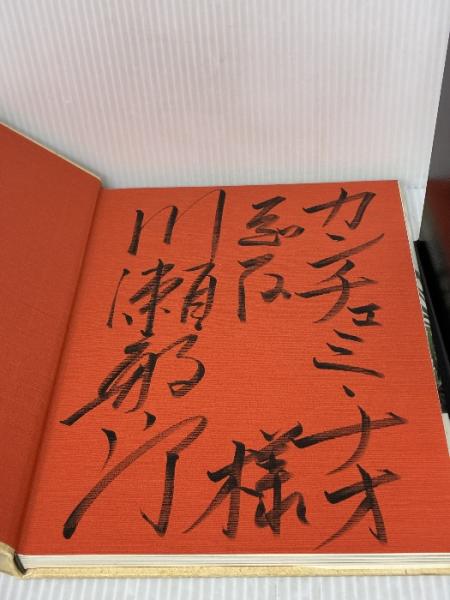 カンチェミ・ナオ
様
川瀬敏郎